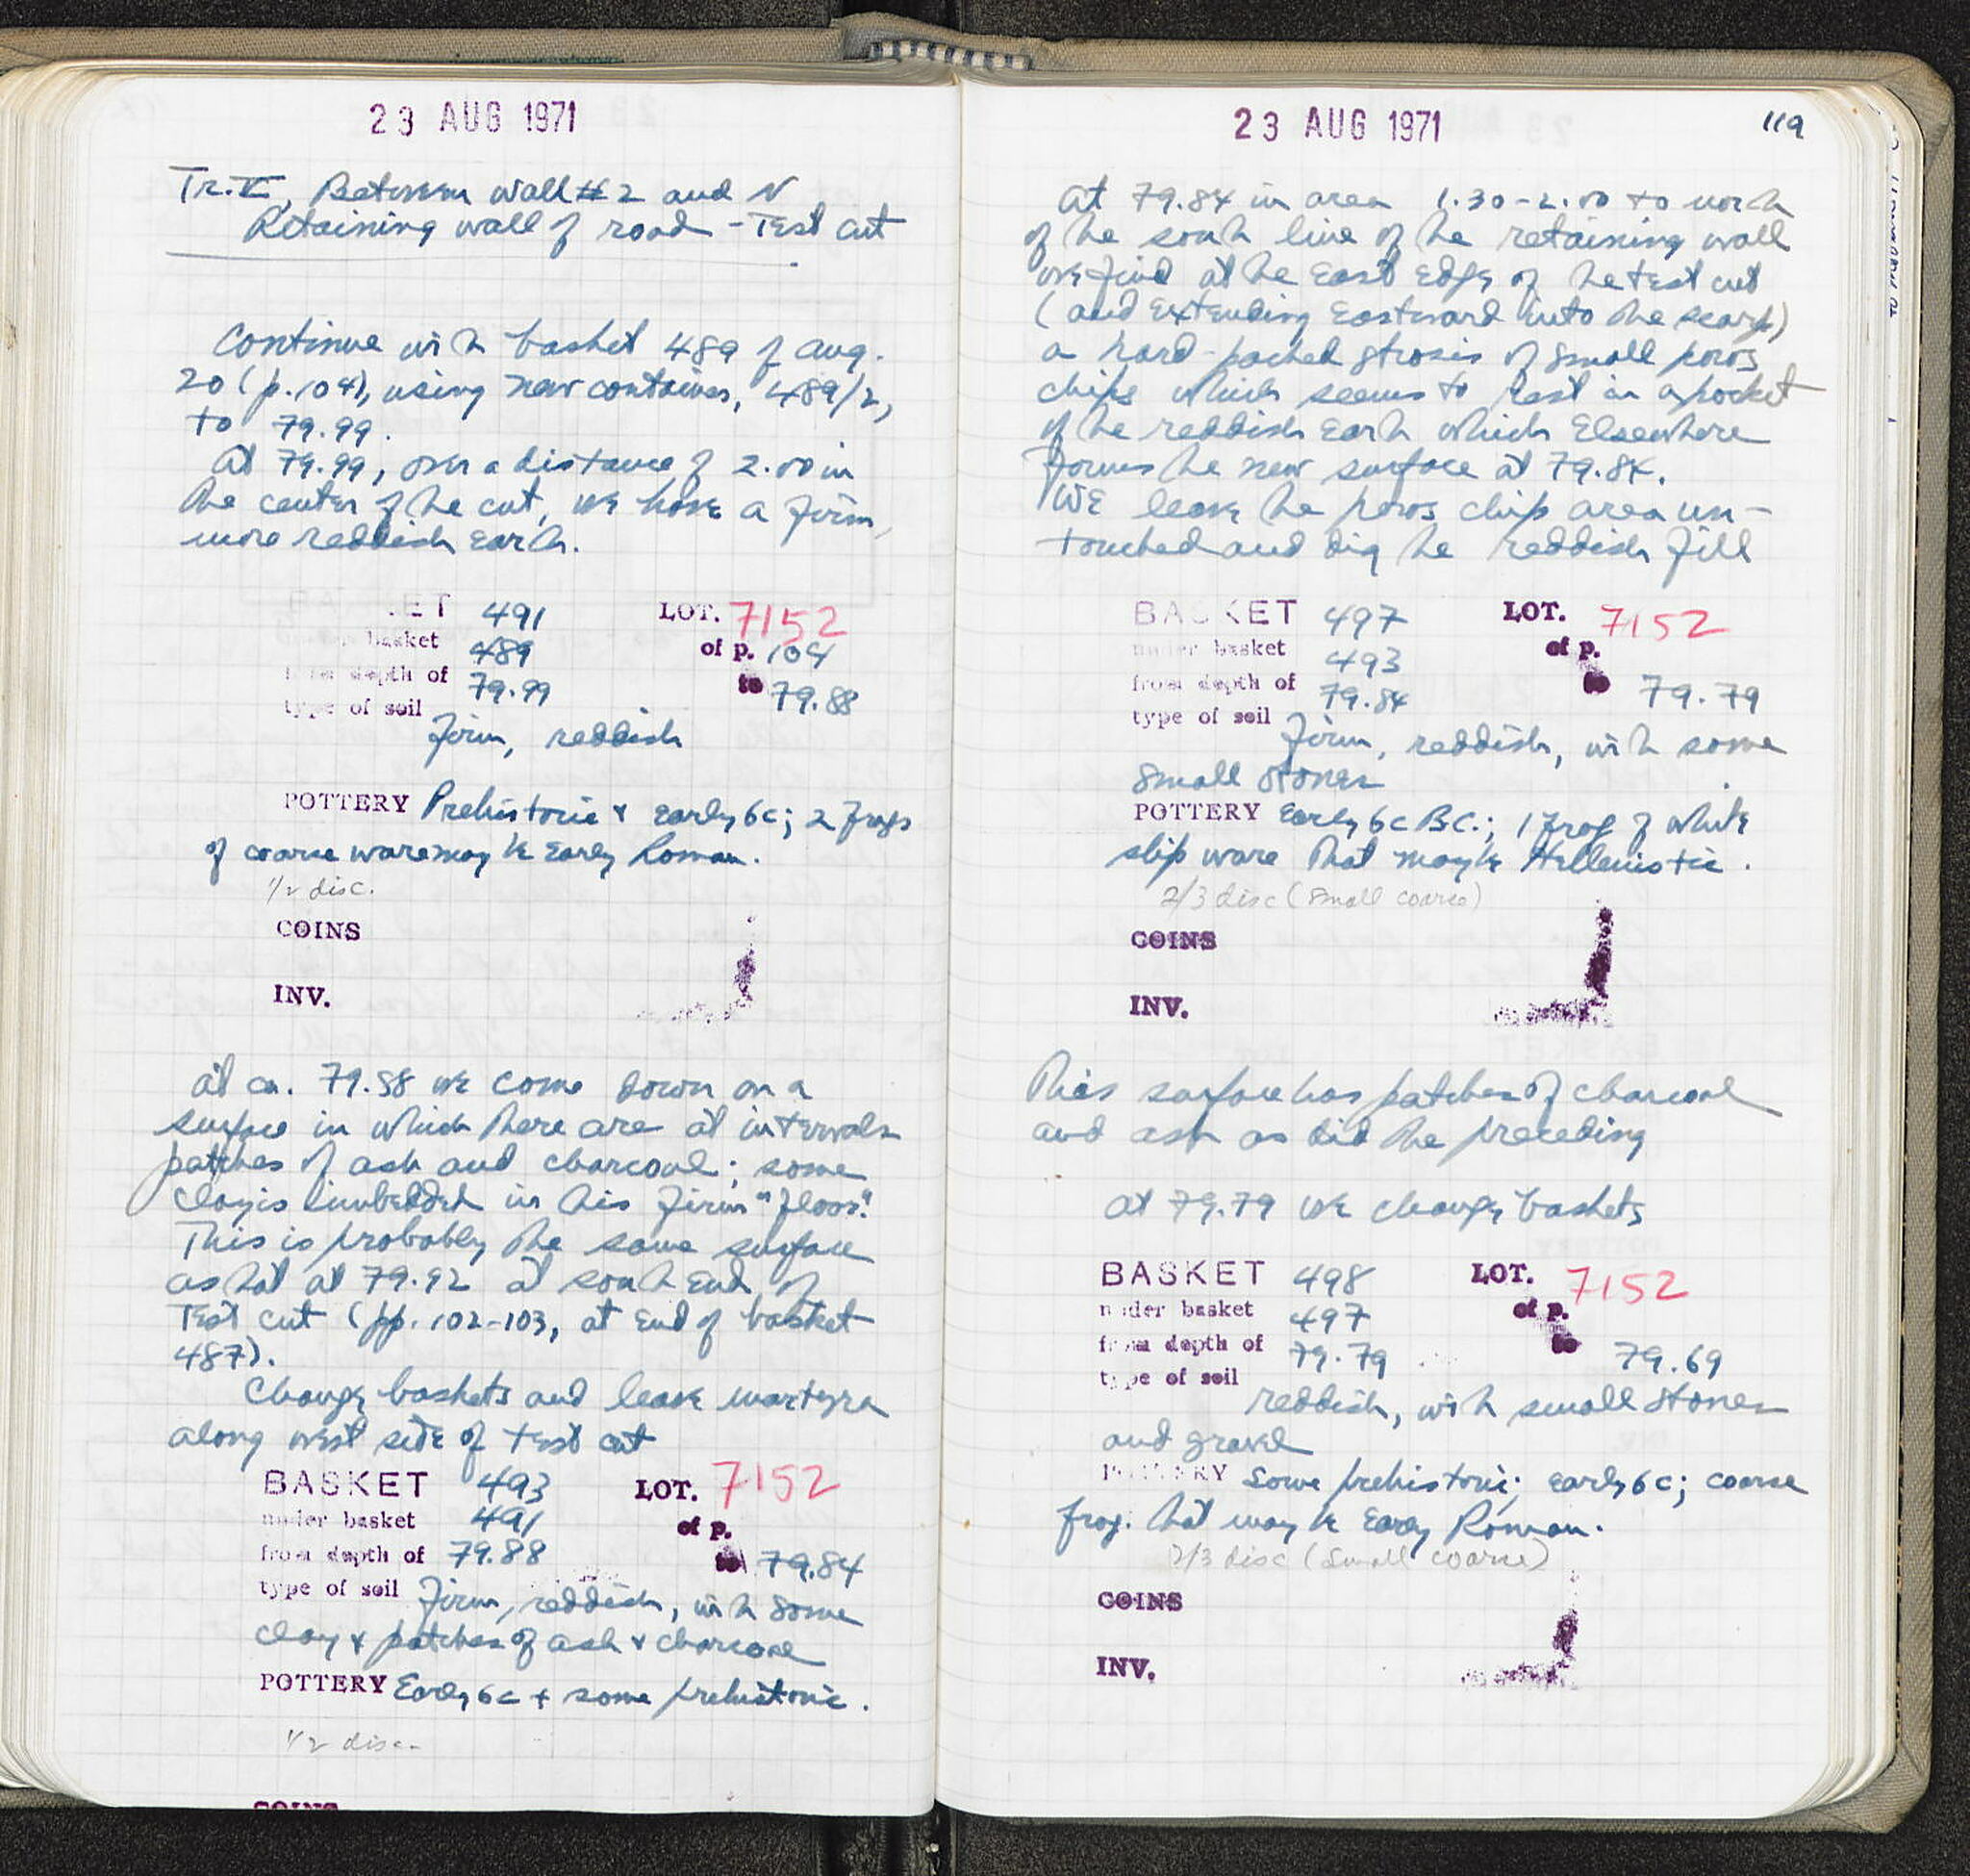 23 AUG 1971
Tr. V, Between wall #2 and N
Retaining wall of road - Test cut
Continue with basket 489 of Aug.
20 (p. 104), using new container, 489/2,
to 79.99.
At 79.99, over a distance of 2.00 in
the center of the cut, we have a firm,
more reddish earth.
ET 491 LOT. 7152
basket 489 of p. 104
from depth of 79.99 to 79.88
type of soil
firm, reddish
POTTERY Prehistoric & early 6c; 2 frags
of coarse ware may be Early Roman.
1/2 disc.
COINS
INV.
At ca. 79.88 we come down on a
surface in which there are at intervals
patches of ash and charcoal; some
clay is imbedded in this firm "floor".
This is probably the same surface
as that at 79.92 at south end of
Test cut (pp. 102-103, at end of basket
487).
Change baskets and leave martyra
along west side of test cut
BASKET 493 LOT. 7152
under basket 491 of p.
from depth of 79.88 to 79.84
type of soil firm, reddish, with some
clay & patches of ash & charcoal
POTTERY Early 6c + some prehistoric.
1/2 disc.
COINS
23 AUG 1971
119
At 79.84 in area 1.30-2.00 to north
of the south line of the retaining wall
we find at the East edge of the test cut
(and extending Eastward into the scarp)
a hard-packed strosis of small poros
chips which seems to rest in a pocket
of the reddish earth which Elsewhere
forms the new surface at 79.84.
We leave the poros chip area un-
touched and dig the reddish fill
BASKET 497 LOT. 7152
under basket 493 of p.
from depth of 79.84 to 79.79
type of soil firm, reddish, with some
small stones
POTTERY Early 6c B.C.; 1 frag of white
slip ware that may be Hellenistic.
2/3 disc (small coarse)
COINS
INV.
This surface has patches of charcoal
and ash as did the preceding
At 79.79 we change baskets
BASKET 498 LOT. 7152
under basket 497 of p.
from depth of 79.79 to 79.69
type of soil
reddish, with small stones
and gravel
POTTERY Some prehistoric; early 6c; coarse
frag. that may be Early Roman.
2/3 disc (small coarse)
COINS
INV.